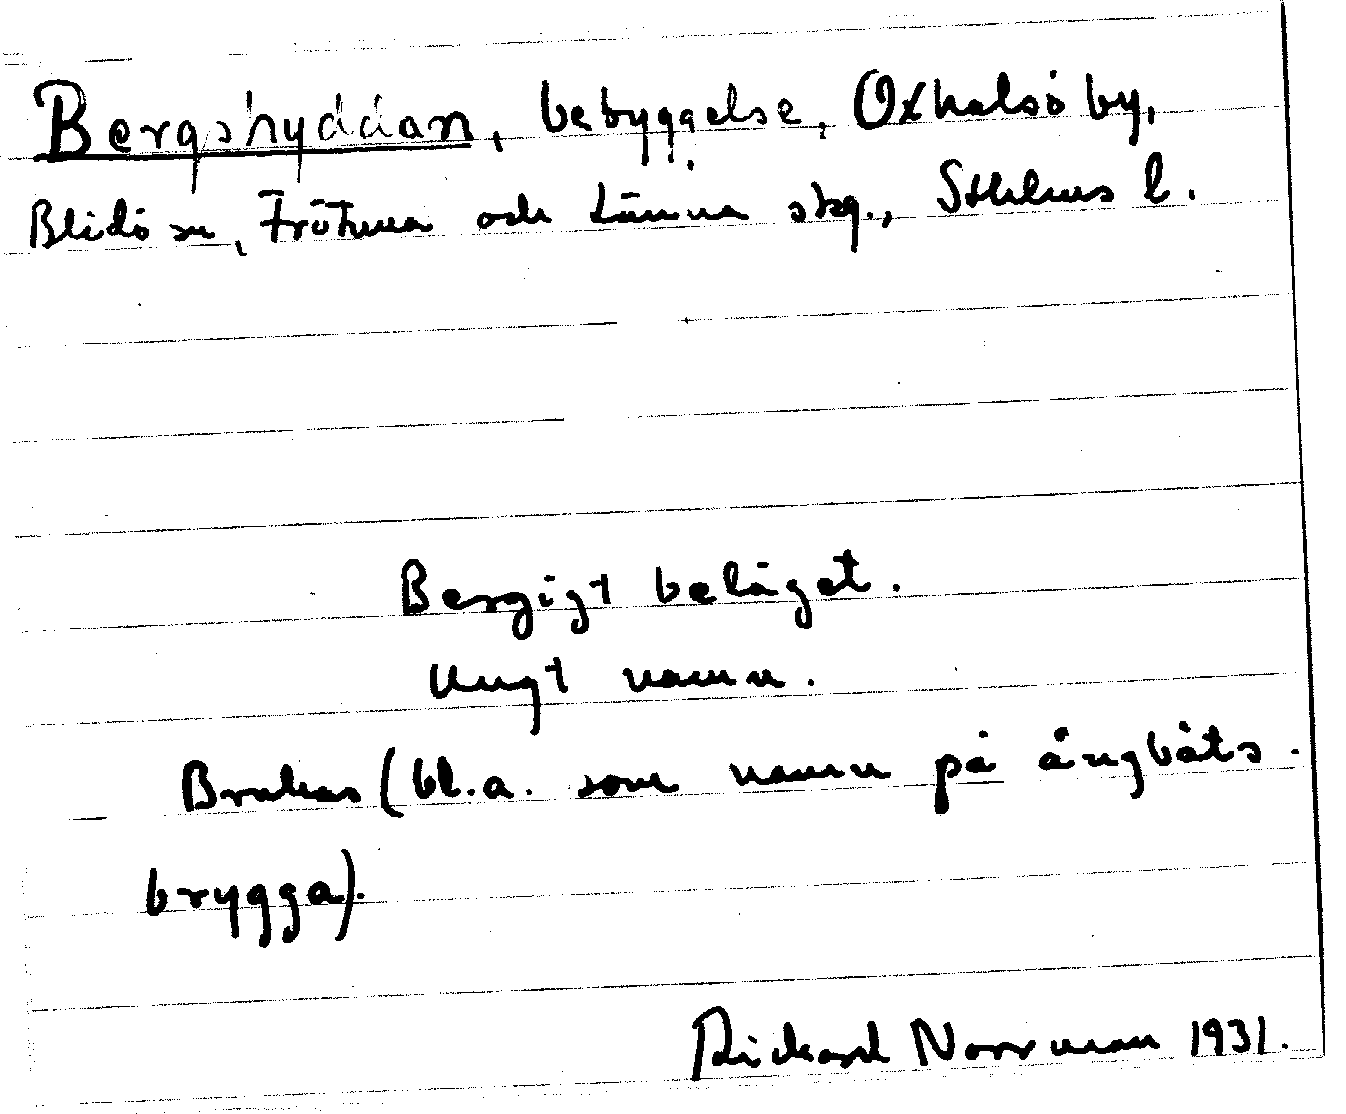 Bergshyddan, bebyggelse, Oxhalsö by,
Blidö sn, Frötuna och Länna skg., Sthlms l.
Bergigt beläget.
Ungt namn.
Brukas (bl.a. som namn på ångbåts-
brygga).
Rickard Norrman 1931.